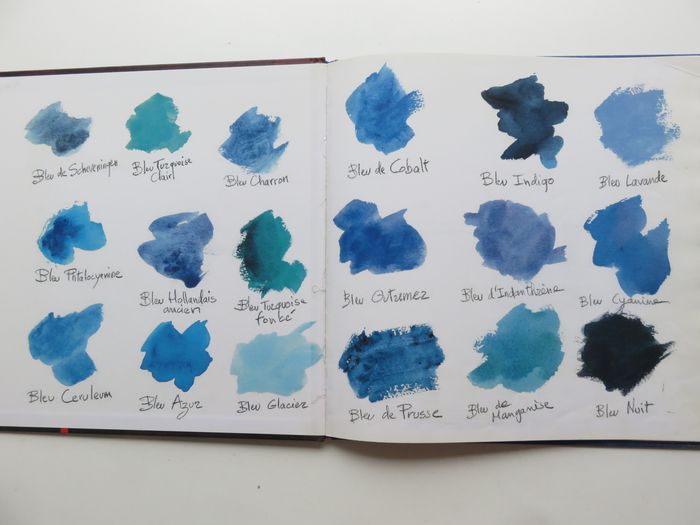 Bleu de Scheveningen
Bleu Turquoise
Clair
Bleu Charron
Bleu Phtalocyanine
Bleu Hollandais
ancien
Bleu Turquoise
foncé
Bleu Ceruleum
Bleu Azur
Bleu Glacier
Bleu de Cobalt
Bleu Indigo
Bleu Lavande
Bleu Outremer
Bleu d'Indanthrène
Bleu Cyanine
Bleu de Prusse
Bleu de
Manganèse
Bleu Nuit